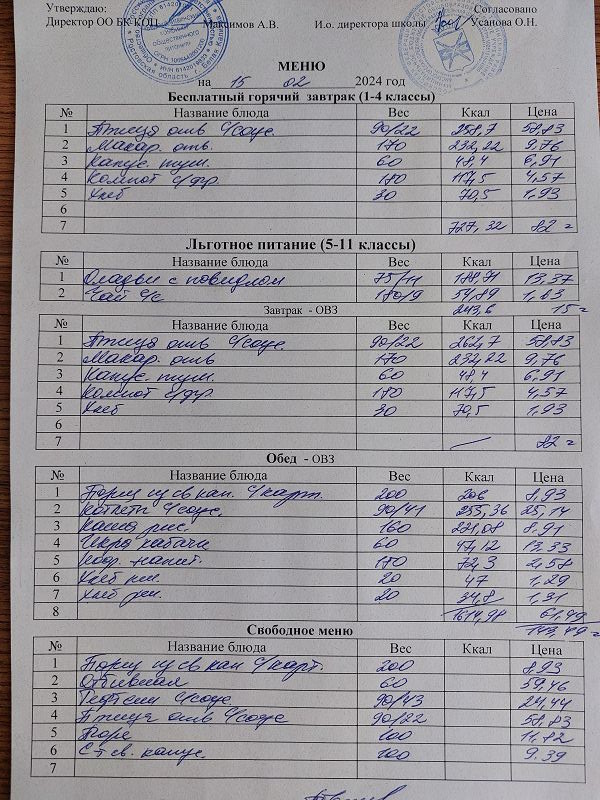 Утверждаю: Согласовано
Директор ОО БК-КОП Максимов А.В. И.о. директора школы Усанова О.Н.
МЕНЮ
на 15 02 2024 год
Бесплатный горячий завтрак (1-4 классы)
№ Название блюда Вес Ккал Цена
1 Птица отв с/соус. 90/22 258,7 58,83
2 Макар. отв. 170 232,22 9,76
3 Капус. туш. 60 48,4 6,91
4 Компот с/фр 180 117,5 4,57
5 Хлеб 30 70,5 1,93
6
7 727,32 82=
Льготное питание (5-11 классы)
№ Название блюда Вес Ккал Цена
1 Оладьи с повидлом 75/11 188,71 13,37
2 Чай с/с 180/9 54,89 1,63
243,6 15=
Завтрак - ОВЗ
№ Название блюда Вес Ккал Цена
1 Птица отв с/соус. 90/22 262,7 58,83
2 Макар. отв 170 232,22 9,76
3 Капус. туш. 60 48,4 6,91
4 Компот с/фр 180 117,5 4,57
5 Хлеб 30 70,5 1,93
6
7 82=
Обед - ОВЗ
№ Название блюда Вес Ккал Цена
1 Борщ из св кап. с/карт. 200 206 8,93
2 Котлеты с/соус. 90/41 255,36 25,14
3 Каша рис. 160 221,08 8,91
4 Икра кабачк 60 47,12 13,33
5 170 72,3 2,58
6 Хлеб 20 47 1,29
7 Хлеб рж. 20 34,8 1,31
8 1614,98 61,49
143,49=
Свободное меню
№ Название блюда Вес Ккал Цена
1 Борщ из св кап с/карт. 200 8.93
2 Отбивная 60 59,46
3 Тефтели с/соус 90/43 24,44
4 Птица отв с/соус 90/22 58,83
5 Пюре 100 11,82
6 Ст св. капус. 100 9.39
7